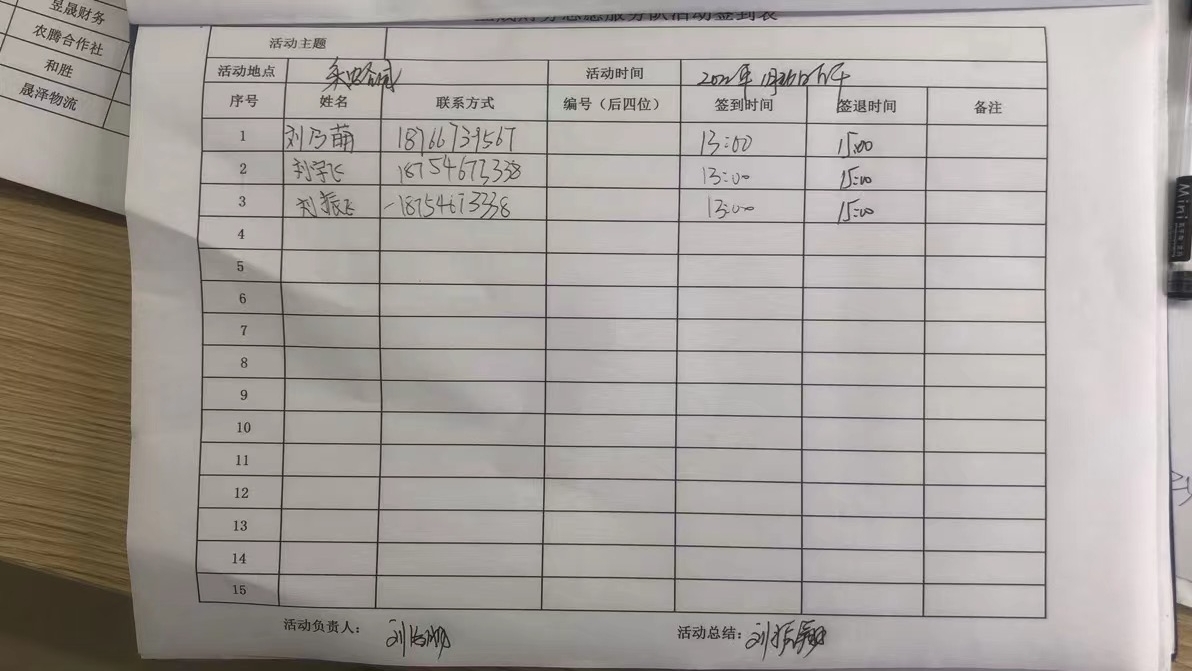 昱晟财务
农腾合作社
和胜
晟泽物流
财务志愿服务队活动签到表
活动主题
活动地点 活动时间
序号 姓名 联系方式 编号（后四位） 签到时间 签退时间 备注
1 刘乃萌 18766739567 13:00 15:00
2 刘宇飞 13:00 15:00
3 刘振飞 18754673338 13:00 15:00
4
5
6
7
8
9
10
11
12
13
14
15
活动负责人： 活动总结：
Mini